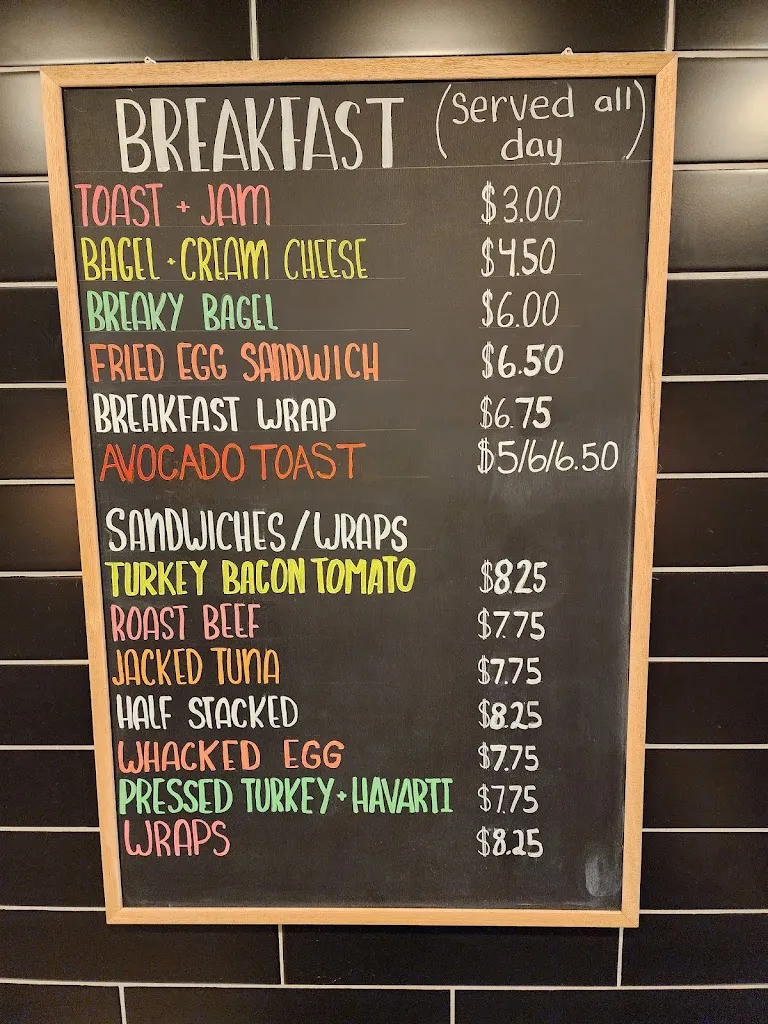 BREAKFAST (Served all day)
TOAST + JAM $3.00
BAGEL + CREAM CHEESE $4.50
BREAKY BAGEL $6.00
FRIED EGG SANDWICH $6.50
BREAKFAST WRAP $6.75
AVOCADO TOAST $5/6/6.50
SANDWICHES/WRAPS
TURKEY BACON TOMATO $8.25
ROAST BEEF $7.75
JACKED TUNA $7.75
HALF STACKED $8.25
WHACKED EGG $7.75
PRESSED TURKEY + HAVARTI $7.75
WRAPS $8.25